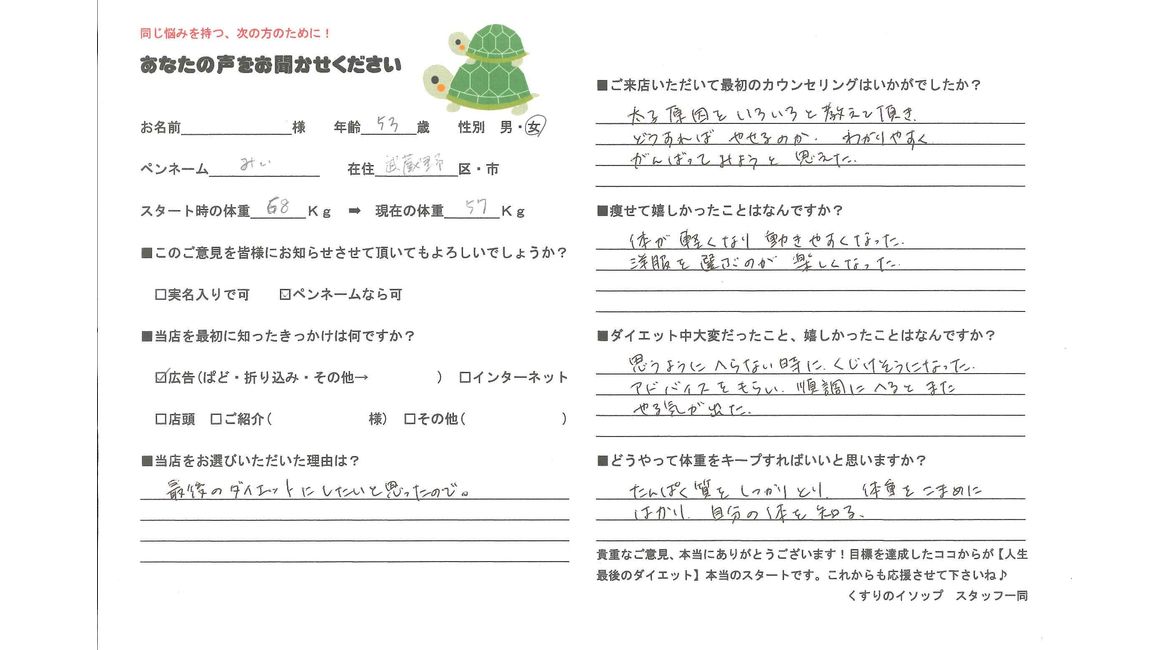 同じ悩みを持つ、次の方のために！
あなたの声をお聞かせください
お名前 様 年齢 53 歳 性別 男・女
ペンネーム みい 在住 武蔵野 区・市
スタート時の体重 68 Ｋｇ ➡ 現在の体重 57 Ｋｇ
■このご意見を皆様にお知らせさせて頂いてもよろしいでしょうか？
□実名入りで可 ☑ペンネームなら可
■当店を最初に知ったきっかけは何ですか？
☑広告(ぱど・折り込み・その他→ ) □インターネット
□店頭 □ご紹介( 様) □その他( )
■当店をお選びいただいた理由は？
最後のダイエットにしたいと思ったので。
■ご来店いただいて最初のカウンセリングはいかがでしたか？
太る原因をいろいろと教えて頂き、
どうすれば やせるのか、わかりやすく
がんばってみようと 思えた。
■痩せて嬉しかったことはなんですか？
体が 軽くなり 動きやすくなった。
洋服を 選ぶのが 楽しくなった。
■ダイエット中大変だったこと、嬉しかったことはなんですか？
思うように へらない時に、くじけそうになった。
アドバイスを もらい、順調に へると また
やる気が出た。
■どうやって体重をキープすればいいと思いますか？
たんぱく質を しっかりとり、体重を こまめに
はかり、自分の体を 知る。
貴重なご意見、本当にありがとうございます！目標を達成したココからが【人生
最後のダイエット】本当のスタートです。これからも応援させて下さいね♪
くすりのイソップ スタッフ一同